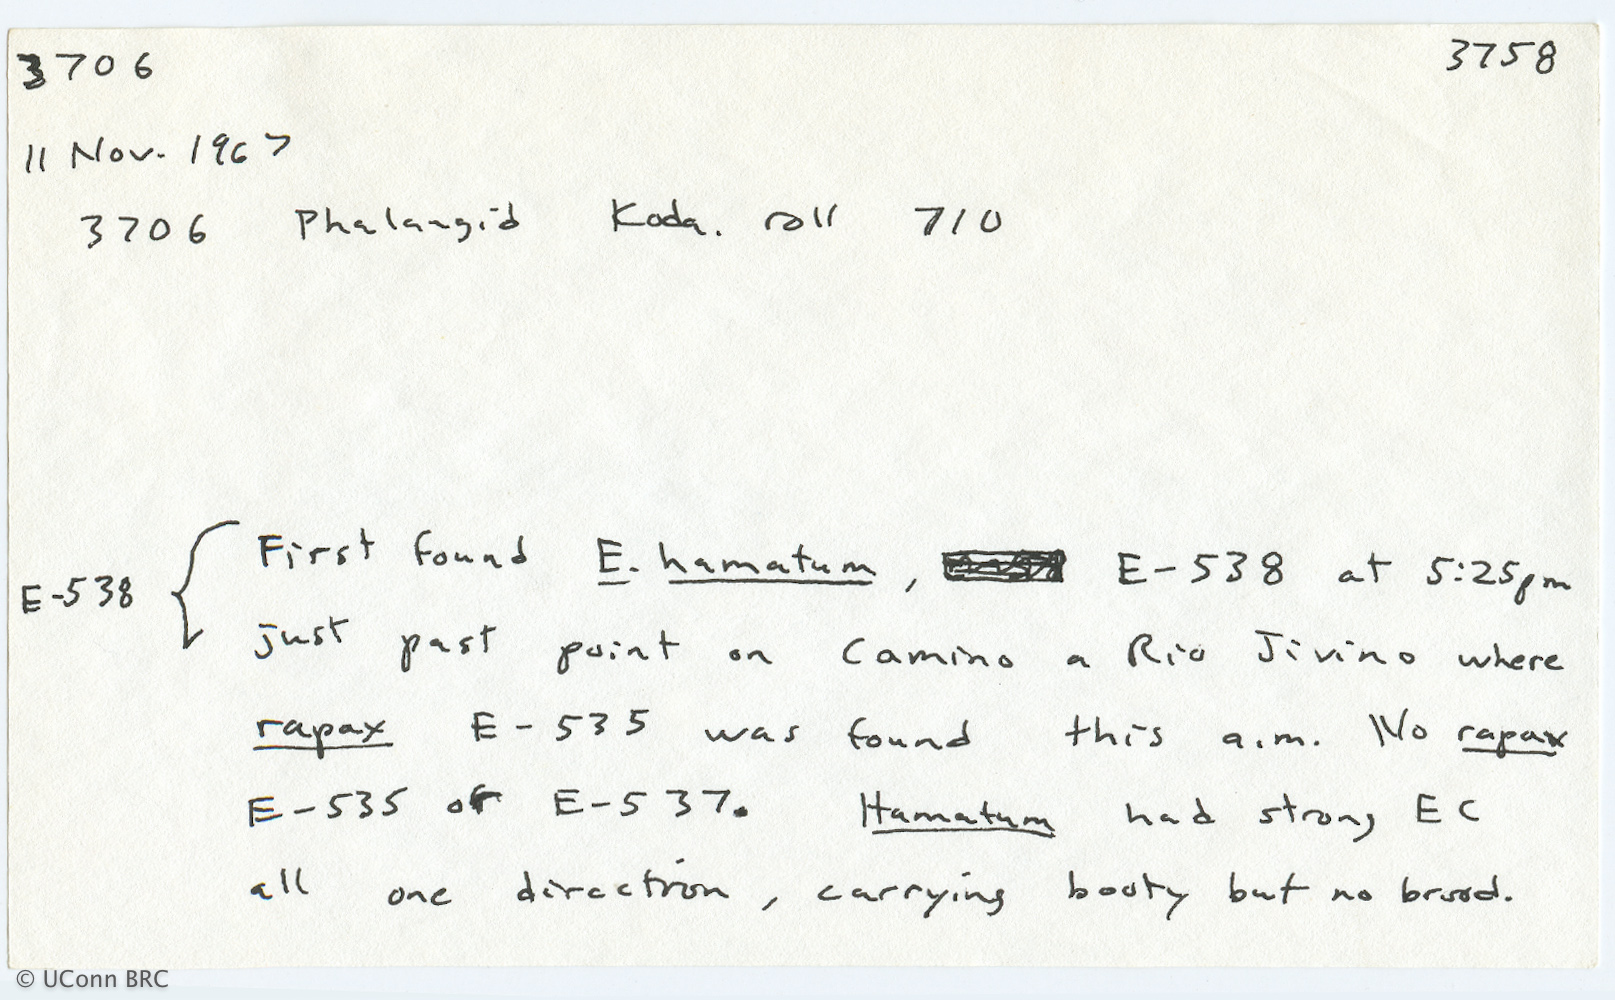 3706 3758
11 Nov. 1967
3706 Phalangid Koda. roll 710
First found E. hamatum, E-538 at 5:25pm
E-538
just past point on Camino a Rio Jivino where
rapax E-535 was found this a.m. No rapax
E-535 or E-537. Hamatum had strong EC
all one direction, carrying booty but no brood.
© UConn BRC